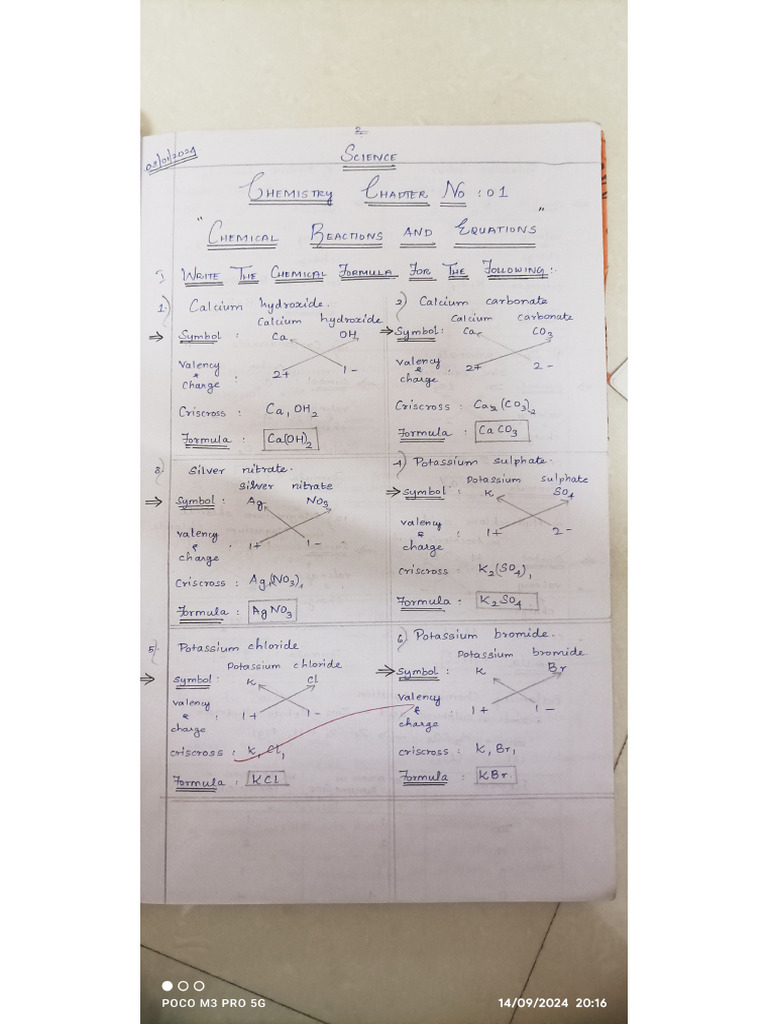 2
03/01/2024
SCIENCE
CHEMISTRY CHAPTER No : 01
"CHEMICAL REACTIONS AND EQUATIONS"
I WRITE THE CHEMICAL FORMULA FOR THE FOLLOWING:-
1) Calcium hydroxide.
Calcium hydroxide
⇒ Symbol : Ca OH
Valency & charge : 2+ 1-
Criscross : Ca₁OH₂
Formula : Ca(OH)₂
2) Calcium carbonate
Calcium carbonate
⇒ Symbol : Ca CO₃
Valency & charge : 2+ 2-
Criscross : Ca₂(CO₃)₂
Formula : CaCO₃
3) Silver nitrate.
silver nitrate
⇒ Symbol : Ag NO₃
valency & charge : 1+ 1-
Criscross : Ag₁(NO₃)₁
Formula : AgNO₃
4) Potassium sulphate.
Potassium sulphate
⇒ Symbol : K SO₄
valency & charge : 1+ 2-
criscross : K₂(SO₄)₁
Formula : K₂SO₄
5) Potassium chloride
Potassium chloride
⇒ Symbol : K Cl
valency & charge : 1+ 1-
criscross : K₁Cl₁
Formula : KCl
6) Potassium bromide.
Potassium bromide
⇒ Symbol : K Br
valency & charge : 1+ 1-
criscross : K₁Br₁
Formula : KBr.
POCO M3 PRO 5G
14/09/2024 20:16